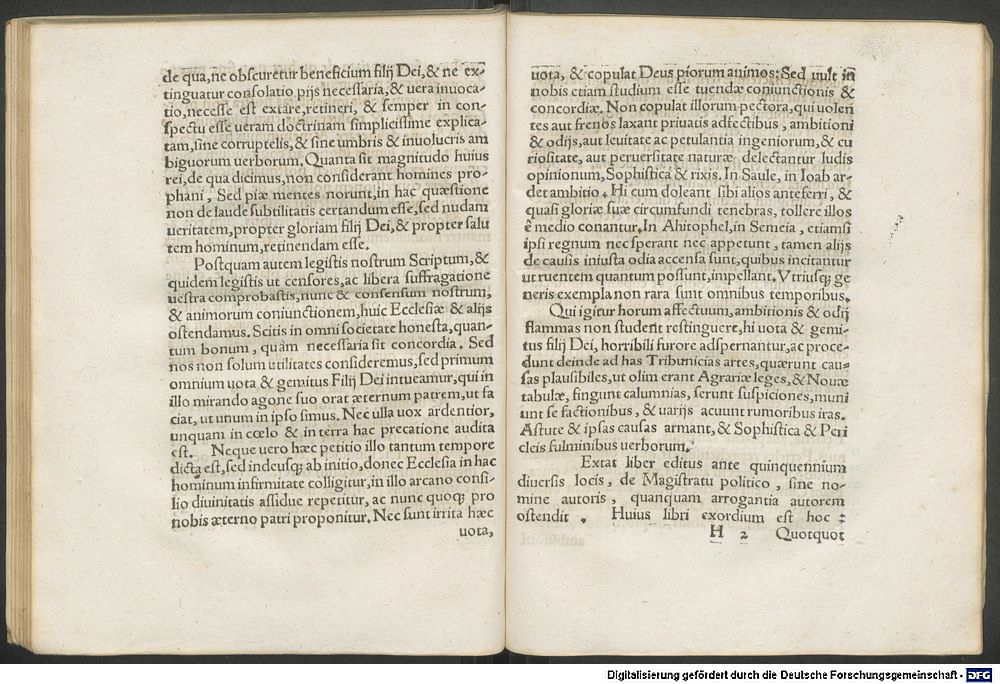 de qua, ne obscuretur beneficium filij Dei, & ne ex-
tinguatur consolatio pijs necessaria, & uera inuoca-
tio, necesse est extare, retineri, & semper in con-
spectu esse ueram doctrinam simplicissime explica-
tam, sine corruptelis, & sine umbris & inuolucris am
biguorum uerborum. Quanta sit magnitudo huius
rei, de qua dicimus, non considerant homines pro-
phani, Sed piæ mentes norunt, in hac quæstione
non de laude subtilitatis certandum esse, sed nudam
ueritatem, propter gloriam filij Dei, & propter salu
tem hominum, retinendam esse.
Postquam autem legistis nostrum Scriptum, &
quidem legistis ut censores, ac libera suffragatione
uestra comprobastis, nunc & consensum nostrum,
& animorum coniunctionem, huic Ecclesiæ & alijs
ostendamus. Scitis in omni societate honesta, quan-
tum bonum, quàm necessaria sit concordia. Sed
nos non solum utilitates consideremus, sed primum
omnium uota & gemitus Filij Dei intueamur, qui in
illo mirando agone suo orat æternum patrem, ut fa
ciat, ut unum in ipso simus. Nec ulla uox ardentior,
unquam in cœlo & in terra hac precatione audita
est. Neque uero hæc petitio illo tantum tempore
dicta est, sed indeusqꝫ ab initio, donec Ecclesia in hac
hominum infirmitate colligitur, in illo arcano consi-
lio diuinitatis assidue repetitur, ac nunc quoqꝫ pro
nobis æterno patri proponitur. Nec sunt irrita hæc
uota,
uota, & copulat Deus piorum animos: Sed uult in
nobis etiam studium esse tuendæ coniunctionis &
concordiæ. Non copulat illorum pectora, qui uolen
tes aut frenos laxant priuatis adfectibus, ambitioni
& odijs, aut leuitate ac petulantia ingeniorum, & cu
riositate, aut peruersitate naturæ delectantur ludis
opinionum, Sophistica & rixis. In Saule, in Ioab ar-
det ambitio. Hi cum doleant sibi alios anteferri, &
quasi gloriæ suæ circumfundi tenebras, tollere illos
ē medio conantur. In Ahitophel, in Semeia, etiamsi
ipsi regnum nec sperant nec appetunt, tamen alijs
de causis iniusta odia accensa sunt, quibus incitantur
ut ruentem quantum possunt, impellant. Vtriusqꝫ ge
neris exempla non rara sunt omnibus temporibus.
Qui igitur horum affectuum, ambitionis & odij
flammas non student restinguere, hi uota & gemi-
tus filij Dei, horribili furore adspernantur, ac proce-
dunt deinde ad has Tribunicias artes, quærunt cau-
sas plausibiles, ut olim erant Agrariæ leges, & Nouæ
tabulæ, fingunt calumnias, serunt suspiciones, muni
unt se factionibus, & uarijs acuunt rumoribus iras.
Astute & ipsas causas armant, & Sophistica & Peri
cleis fulminibus uerborum.
Extat liber editus ante quinquennium
diuersis locis, de Magistratu politico, sine no-
mine autoris, quanquam arrogantia autorem
ostendit. Huius libri exordium est hoc:
H 2 Quotquot
Digitalisierung gefördert durch die Deutsche Forschungsgemeinschaft - DFG